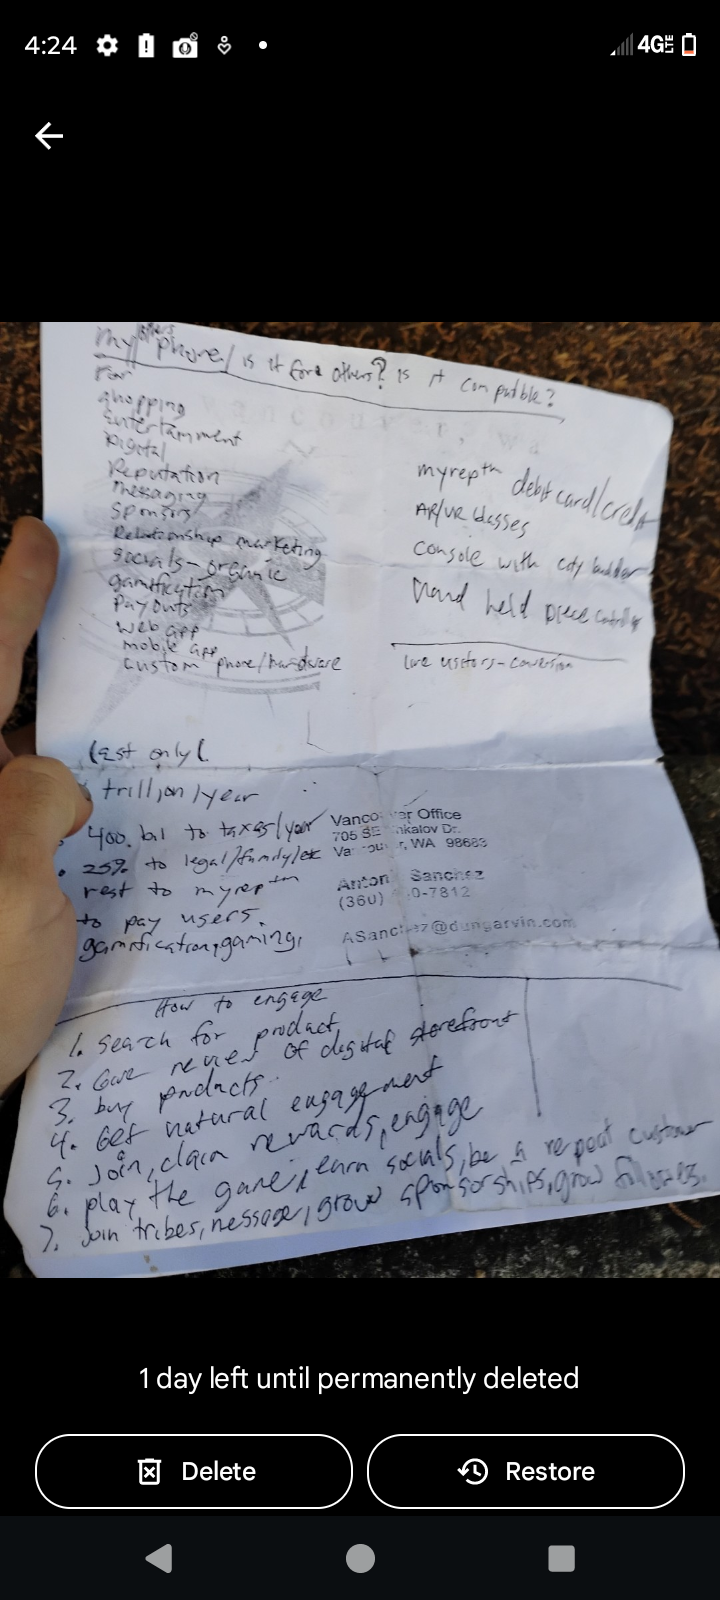 4:24
4G LTE
my phone / is it for others? is it compatible?
For
shopping
Entertainment
Digital
Reputation
messaging
Sponsors
Relationship marketing
socials-organic
gamification
payouts
web app
mobile app
custom phone/hardware
myrep™ debit card/credit
AR/VR Glasses
Console with city builder
Hand held piece controller
live visitors-conversion
last only
trillion/year
400. bil to taxes/year
25% to legal/family/etc
rest to myrep™
to pay users.
gamification, gaming,
Vanco er Office
705 SE nkalov Dr.
r, WA 98683
Anton Sanchez
(360) 0-7812
ASanchez@dungarvin.com
How to engage
1. search for product
2. Give review of digital storefront
3. buy products
4. Get natural engagement
5. Join, claim rewards, engage
6. play the game, earn socials, be a repeat customer
7. Join tribes, message, grow sponsorships, grow followers.
1 day left until permanently deleted
Delete
Restore